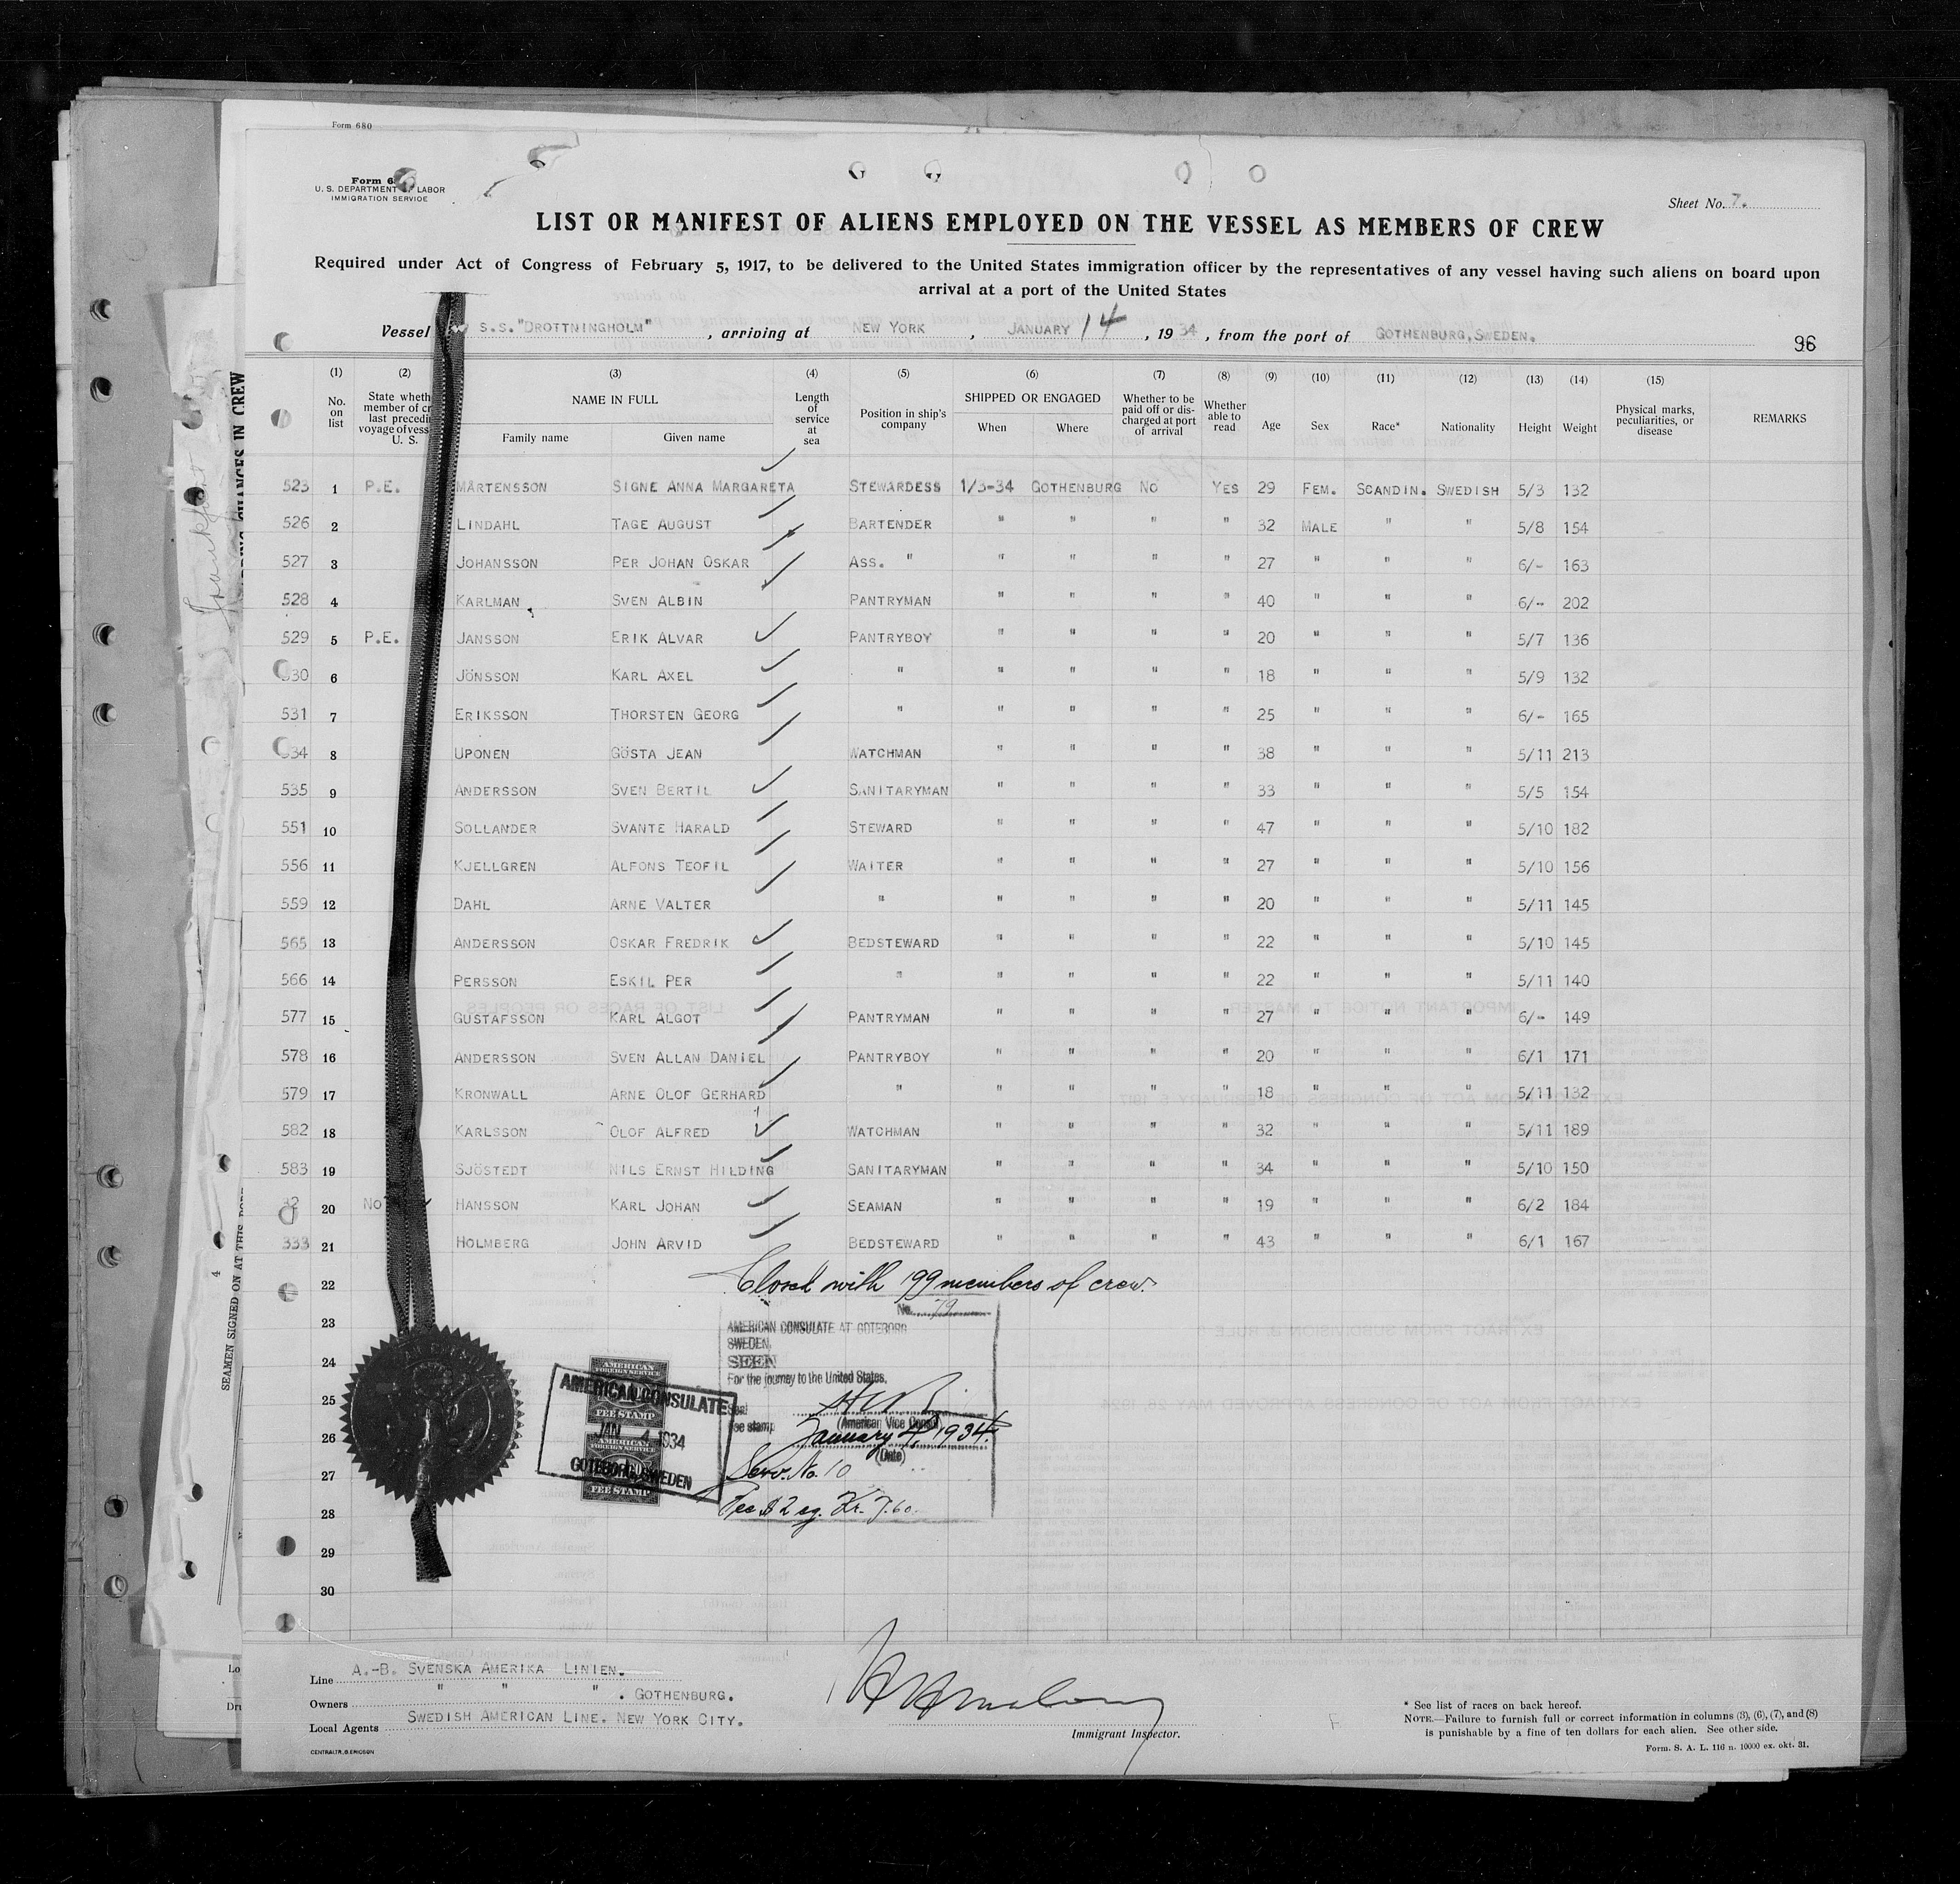 Form 680
Form 6
U. S. DEPARTMENT OF LABOR
IMMIGRATION SERVICE
Sheet No. 7.
LIST OR MANIFEST OF ALIENS EMPLOYED ON THE VESSEL AS MEMBERS OF CREW
Required under Act of Congress of February 5, 1917, to be delivered to the United States immigration officer by the representatives of any vessel having such aliens on board upon
arrival at a port of the United States
Vessel S.S. "DROTTNINGHOLM", arriving at NEW YORK, JANUARY 14, 1934, from the port of GOTHENBURG, SWEDEN.
96
(1) (2) (3) (4) (5) (6) (7) (8) (9) (10) (11) (12) (13) (14) (15)
No. on list
State wheth member of cr last precedi voyage of vess U. S.
NAME IN FULL
Family name Given name
Length of service at sea
Position in ship's company
SHIPPED OR ENGAGED
When Where
Whether to be paid off or discharged at port of arrival
Whether able to read
Age Sex Race* Nationality Height Weight
Physical marks, peculiarities, or disease
REMARKS
523 1 P.E. MÅRTENSSON SIGNE ANNA MARGARETA STEWARDESS 1/3-34 GOTHENBURG NO YES 29 FEM. SCANDIN. SWEDISH 5/3 132
526 2 LINDAHL TAGE AUGUST BARTENDER " " " " 32 MALE " " 5/8 154
527 3 JOHANSSON PER JOHAN OSKAR ASS. " " " " " 27 " " " 6/- 163
528 4 KARLMAN SVEN ALBIN PANTRYMAN " " " " 40 " " " 6/- 202
529 5 P.E. JANSSON ERIK ALVAR PANTRYBOY " " " " 20 " " " 5/7 136
530 6 JÖNSSON KARL AXEL " " " " " 18 " " " 5/9 132
531 7 ERIKSSON THORSTEN GEORG " " " " " 25 " " " 6/- 165
534 8 UPONEN GÖSTA JEAN WATCHMAN " " " " 38 " " " 5/11 213
535 9 ANDERSSON SVEN BERTIL SANITARYMAN " " " " 33 " " " 5/5 154
551 10 SOLLANDER SVANTE HARALD STEWARD " " " " 47 " " " 5/10 182
556 11 KJELLGREN ALFONS TEOFIL WAITER " " " " 27 " " " 5/10 156
559 12 DAHL ARNE VALTER " " " " " 20 " " " 5/11 145
565 13 ANDERSSON OSKAR FREDRIK BEDSTEWARD " " " " 22 " " " 5/10 145
566 14 PERSSON ESKIL PER " " " " " 22 " " " 5/11 140
577 15 GUSTAFSSON KARL ALGOT PANTRYMAN " " " " 27 " " " 6/- 149
578 16 ANDERSSON SVEN ALLAN DANIEL PANTRYBOY " " " " 20 " " " 6/1 171
579 17 KRONWALL ARNE OLOF GERHARD " " " " " 18 " " " 5/11 132
582 18 KARLSSON OLOF ALFRED WATCHMAN " " " " 32 " " " 5/11 189
583 19 SJÖSTEDT NILS ERNST HILDING SANITARYMAN " " " " 34 " " " 5/10 150
20 NO HANSSON KARL JOHAN SEAMAN " " " " 19 " " " 6/2 184
333 21 HOLMBERG JOHN ARVID BEDSTEWARD " " " " 43 " " " 6/1 167
22 Closed with 199 members of crew.
No. 19
23 AMERICAN CONSULATE AT GOTEBORG
SWEDEN,
24 SEEN
For the journey to the United States,
25 Seal
Fee stamp (American Vice Consul)
26 January 4, 1934.
(Date)
27 Serv. No. 10
28 Fee $2 eq. Kr. 7.60
29
30
AMERICAN FOREIGN SERVICE
FEE STAMP
AMERICAN FOREIGN SERVICE
FEE STAMP
AMERICAN CONSULATE
JAN 4 1934
GOTEBORG, SWEDEN
Line A.-B. SVENSKA AMERIKA LINIEN.
Owners " " " . GOTHENBURG.
Local Agents SWEDISH AMERICAN LINE. NEW YORK CITY.
CENTRALTR. G. ERICSON
Immigrant Inspector.
* See list of races on back hereof.
NOTE.—Failure to furnish full or correct information in columns (3), (6), (7), and (8)
is punishable by a fine of ten dollars for each alien. See other side.
Form. S. A. L. 116 n. 10000 ex. okt. 31.
SEAMEN SIGNED ON AT THIS PORT
CHANGES IN CREW
Frankfort